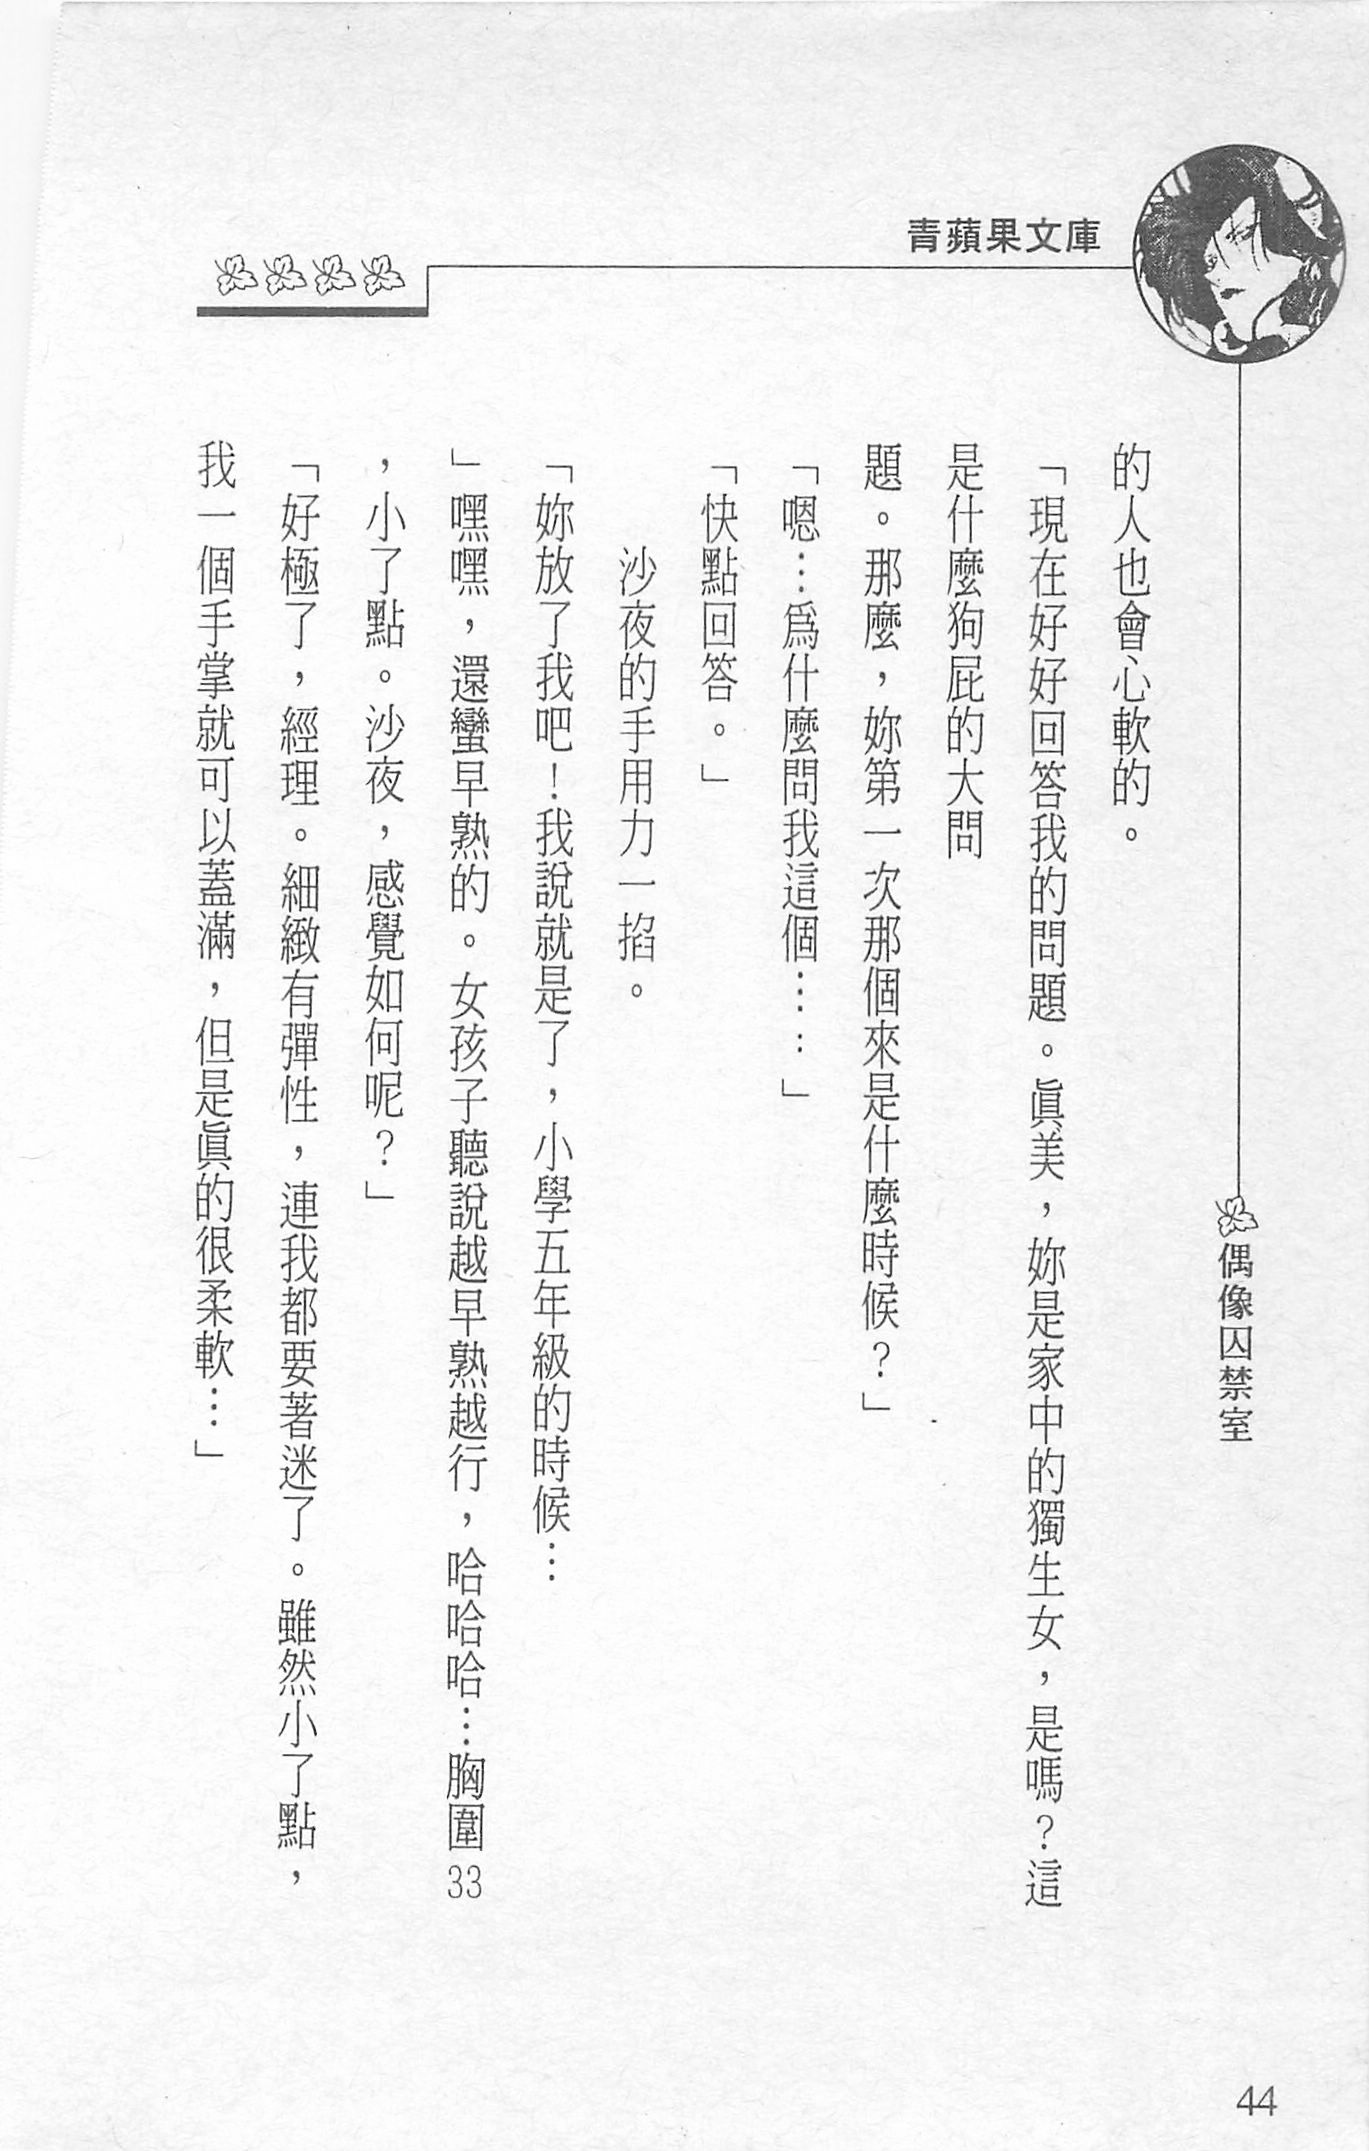 青蘋果文庫
偶像囚禁室
的人也會心軟的。
「現在好好回答我的問題。眞美，妳是家中的獨生女，是嗎？這
是什麼狗屁的大問
題。那麼，妳第一次那個來是什麼時候？」
「嗯…爲什麼問我這個……」
「快點回答。」
沙夜的手用力一掐。
「妳放了我吧！我說就是了，小學五年級的時候…
」嘿嘿，還蠻早熟的。女孩子聽說越早熟越行，哈哈哈…胸圍33
，小了點。沙夜，感覺如何呢？」
「好極了，經理。細緻有彈性，連我都要著迷了。雖然小了點，
我一個手掌就可以蓋滿，但是眞的很柔軟…」
44